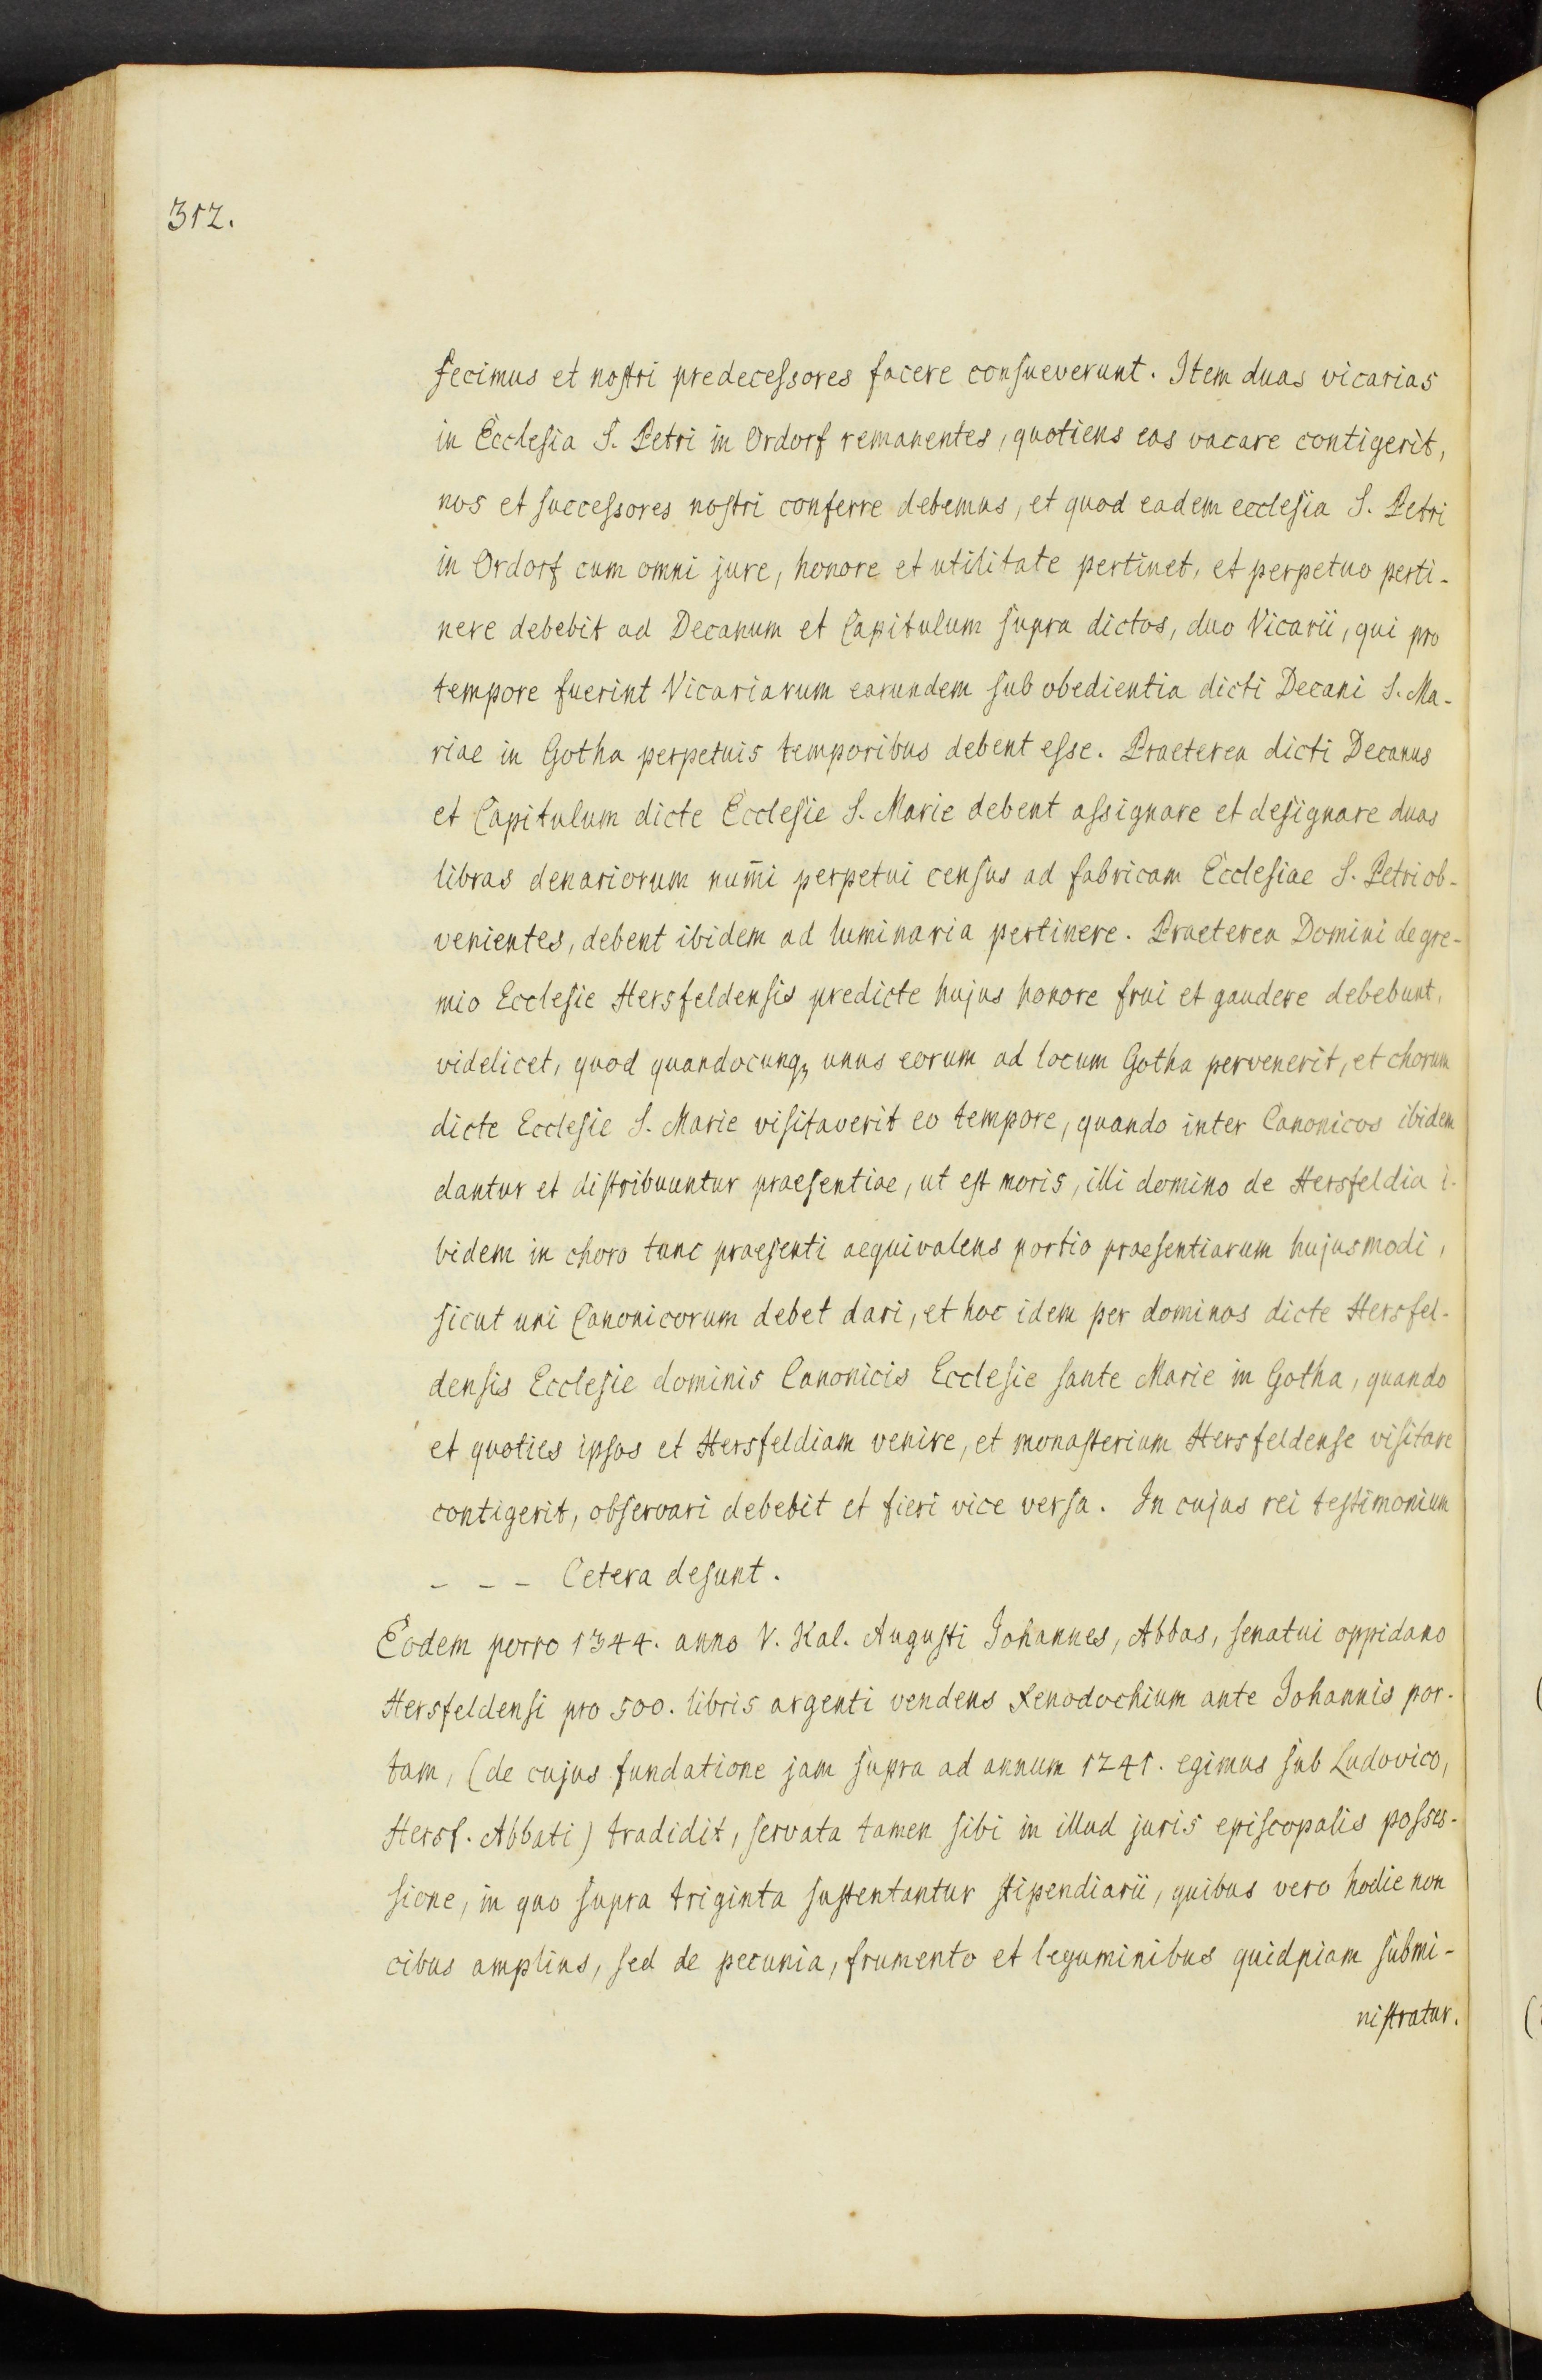 312.
fecimus et nostri predecessores facere consueverunt. Item duas vicarias
in Ecclesia S. Petri in Ordorf remanentes, quotiens eas vacare contigerit,
nos et successores nostri conferre debemus, et quod eadem ecclesia S. Petri
in Ordorf cum omni jure, honore et utilitate pertinet, et perpetuo perti-
nere debebit ad Decanum et Capitulum supra dictos, duo Vicarii, qui pro
tempore fuerint Vicariarum earundem sub obedientia dicti Decani S. Ma-
riae in Gotha perpetuis temporibus debent esse. Praeterea dicti Decanus
et Capitulum dicte Ecclesie S. Marie debent assignare et designare duas
libras denariorum num̄i perpetui census ad fabricam Ecclesiae S. Petri ob-
venientes, debent ibidem ad luminaria pertinere. Praeterea Domini de gre-
mio Ecclesie Hersfeldensis predicte hujus honore frui et gaudere debebunt,
videlicet, quod quandocunq3 unus eorum ad locum Gotha pervenerit, et chorum
dicte Ecclesie S. Marie visitaverit eo tempore, quando inter Canonicos ibidem
dantur et distribuuntur praesentiae, ut est moris, illi domino de Hersfeldia i-
bidem in choro tunc praesenti aequivalens portio praesentiarum hujusmodi,
sicut uni Canonicorum debet dari, et hoc idem per dominos dicte Hersfel-
densis Ecclesie dominis Canonicis Ecclesie sante Marie in Gotha, quando
et quoties ipsos et Hersfeldiam venire, et monasterium Hersfeldense visitare
contigerit, observari debebit et fieri vice versa. In cujus rei testimonium
- - - Cetera desunt.
Eodem porro 1344. anno V. Kal. Augusti Johannes, Abbas, senatui oppidano
Hersfeldensi pro 500. libris argenti vendens Xenodochium ante Johannis por-
tam, (de cujus fundatione jam supra ad annum 1241. egimus sub Ludovico,
Hersf. Abbati) tradidit, servata tamen sibi in illud juris episcopalis posses-
sione, in quo supra triginta sustentantur stipendiarii, quibus vero hodie non
cibus amplius, sed de pecunia, frumento et leguminibus quidpiam submi-
nistratur.